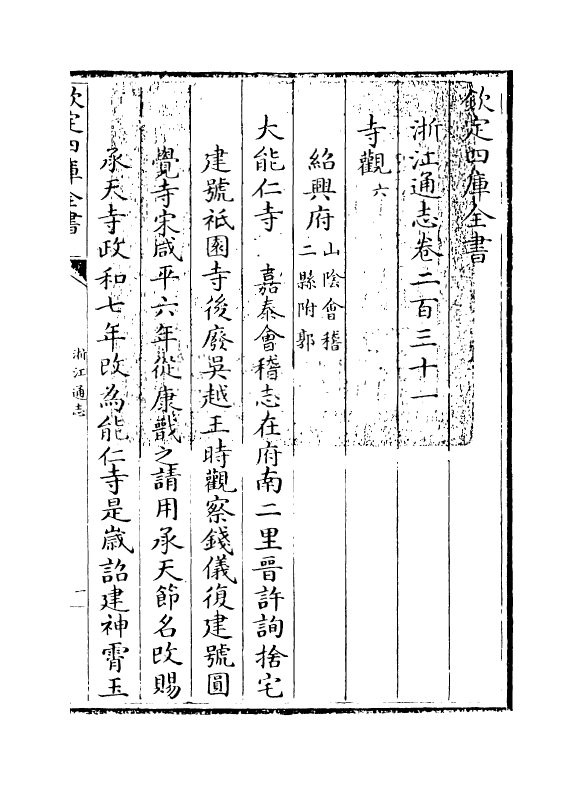 欽定四庫全書
浙江通志卷二百三十一
寺觀六
紹興府山陰會稽二縣附郭
大能仁寺　嘉泰會稽志在府南二里晉許詢捨宅
建號祇園寺後廢吳越王時觀察錢儀復建號圓
覺寺宋咸平六年從康戩之請用承天節名改賜
承天寺政和七年改為能仁寺是歲詔建神霄玉
欽定四庫全書
浙江通志
一